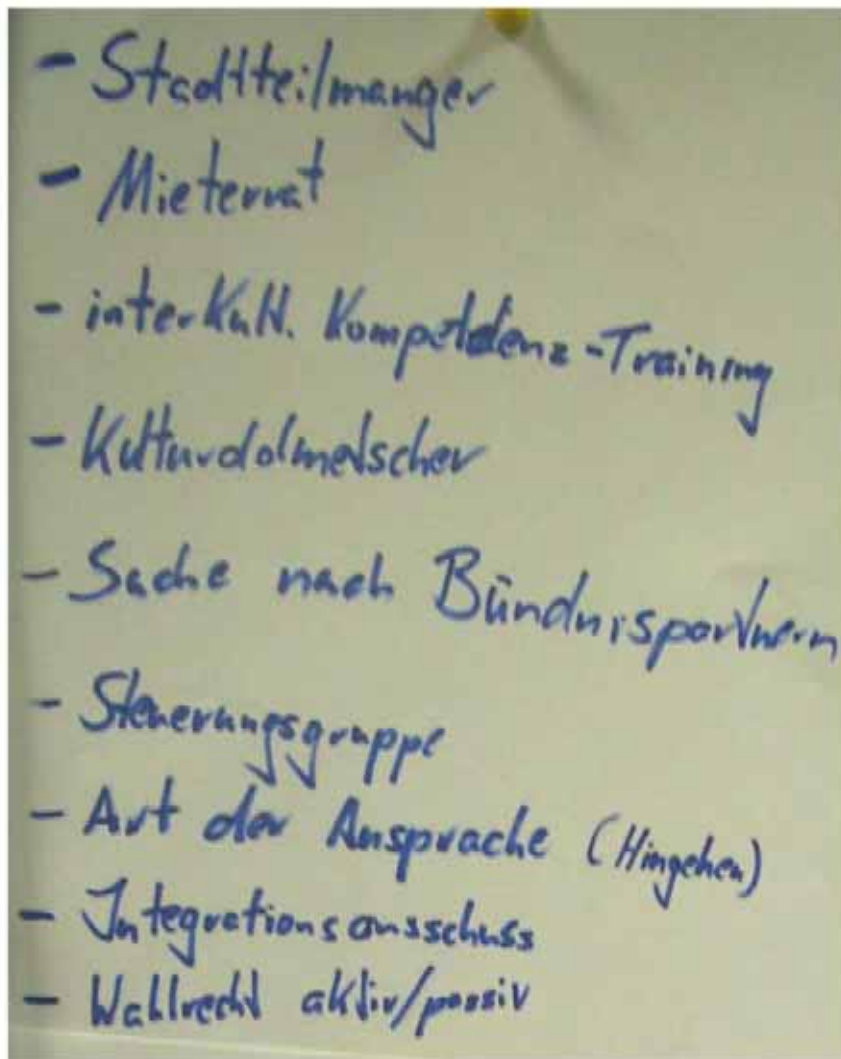 - Stadtteilmanger
- Mieterrat
- interkult. Kompetenz-Training
- Kulturdolmetscher
- Suche nach Bündnispartnern
- Steuerungsgruppe
- Art der Ansprache (Hingehen)
- Integrationsausschuss
- Wahlrecht aktiv/passiv